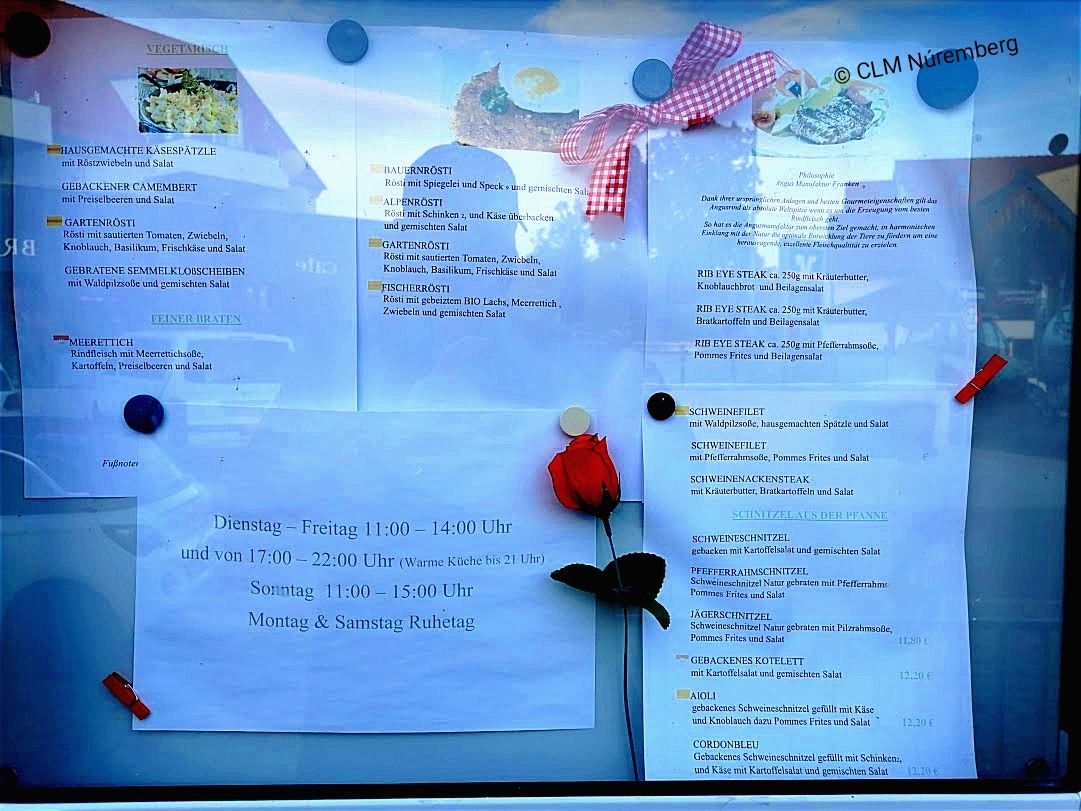 © CLM Núremberg
VEGETARISCH
HAUSGEMACHTE KÄSESPÄTZLE
mit Röstzwiebeln und Salat
GEBACKENER CAMEMBERT
mit Preiselbeeren und Salat
GARTENRÖSTI
Rösti mit sautierten Tomaten, Zwiebeln,
Knoblauch, Basilikum, Frischkäse und Salat
GEBRATENE SEMMELKLOßSCHEIBEN
mit Waldpilzsoße und gemischten Salat
FEINER BRATEN
MEERETTICH
Rindfleisch mit Meerrettichsoße,
Kartoffeln, Preiselbeeren und Salat
BAUERNRÖSTI
Rösti mit Spiegelei und Speck und gemischten Sala
ALPENRÖSTI
Rösti mit Schinken 2, und Käse überbacken
und gemischten Salat
GARTENRÖSTI
Rösti mit sautierten Tomaten, Zwiebeln,
Knoblauch, Basilikum, Frischkäse und Salat
FISCHERRÖSTI
Rösti mit gebeiztem BIO Lachs, Meerrettich ,
Zwiebeln und gemischten Salat
Philosophie
Angus Manufaktur Franken
Dank ihrer ursprünglichen Anlagen und besten Gourmeteigenschaften gilt das
Angusrind als absolute Weltspitze wenn es um die Erzeugung vom besten
Rindfleisch geht.
So hat es die Angusmanufaktur zum obersten Ziel gemacht, in harmonischen
Einklang mit der Natur die optimale Entwicklung der Tiere zu fördern um eine
herausragende, exzellente Fleischqualität zu erzielen.
RIB EYE STEAK ca. 250g mit Kräuterbutter,
Knoblauchbrot und Beilagensalat
RIB EYE STEAK ca. 250g mit Kräuterbutter,
Bratkartoffeln und Beilagensalat
RIB EYE STEAK ca. 250g mit Pfefferrahmsoße,
Pommes Frites und Beilagensalat
SCHWEINEFILET
mit Waldpilzsoße, hausgemachten Spätzle und Salat
SCHWEINEFILET
mit Pfefferrahmsoße, Pommes Frites und Salat €
SCHWEINENACKENSTEAK
mit Kräuterbutter, Bratkartoffeln und Salat
SCHNITZEL AUS DER PFANNE
SCHWEINESCHNITZEL
gebacken mit Kartoffelsalat und gemischten Salat
PFEFFERRAHMSCHNITZEL
Schweineschnitzel Natur gebraten mit Pfefferrahms
Pommes Frites und Salat
JÄGERSCHNITZEL
Schweineschnitzel Natur gebraten mit Pilzrahmsoße,
Pommes Frites und Salat 11,80 €
GEBACKENES KOTELETT
mit Kartoffelsalat und gemischten Salat 12,20 €
AIOLI
gebackenes Schweineschnitzel gefüllt mit Käse
und Knoblauch dazu Pommes Frites und Salat 12,20 €
CORDONBLEU
Gebackenes Schweineschnitzel gefüllt mit Schinken2,
und Käse mit Kartoffelsalat und gemischten Salat 12,20 €
Fußnoten
Dienstag – Freitag 11:00 – 14:00 Uhr
und von 17:00 – 22:00 Uhr (Warme Küche bis 21 Uhr)
Sonntag 11:00 – 15:00 Uhr
Montag & Samstag Ruhetag